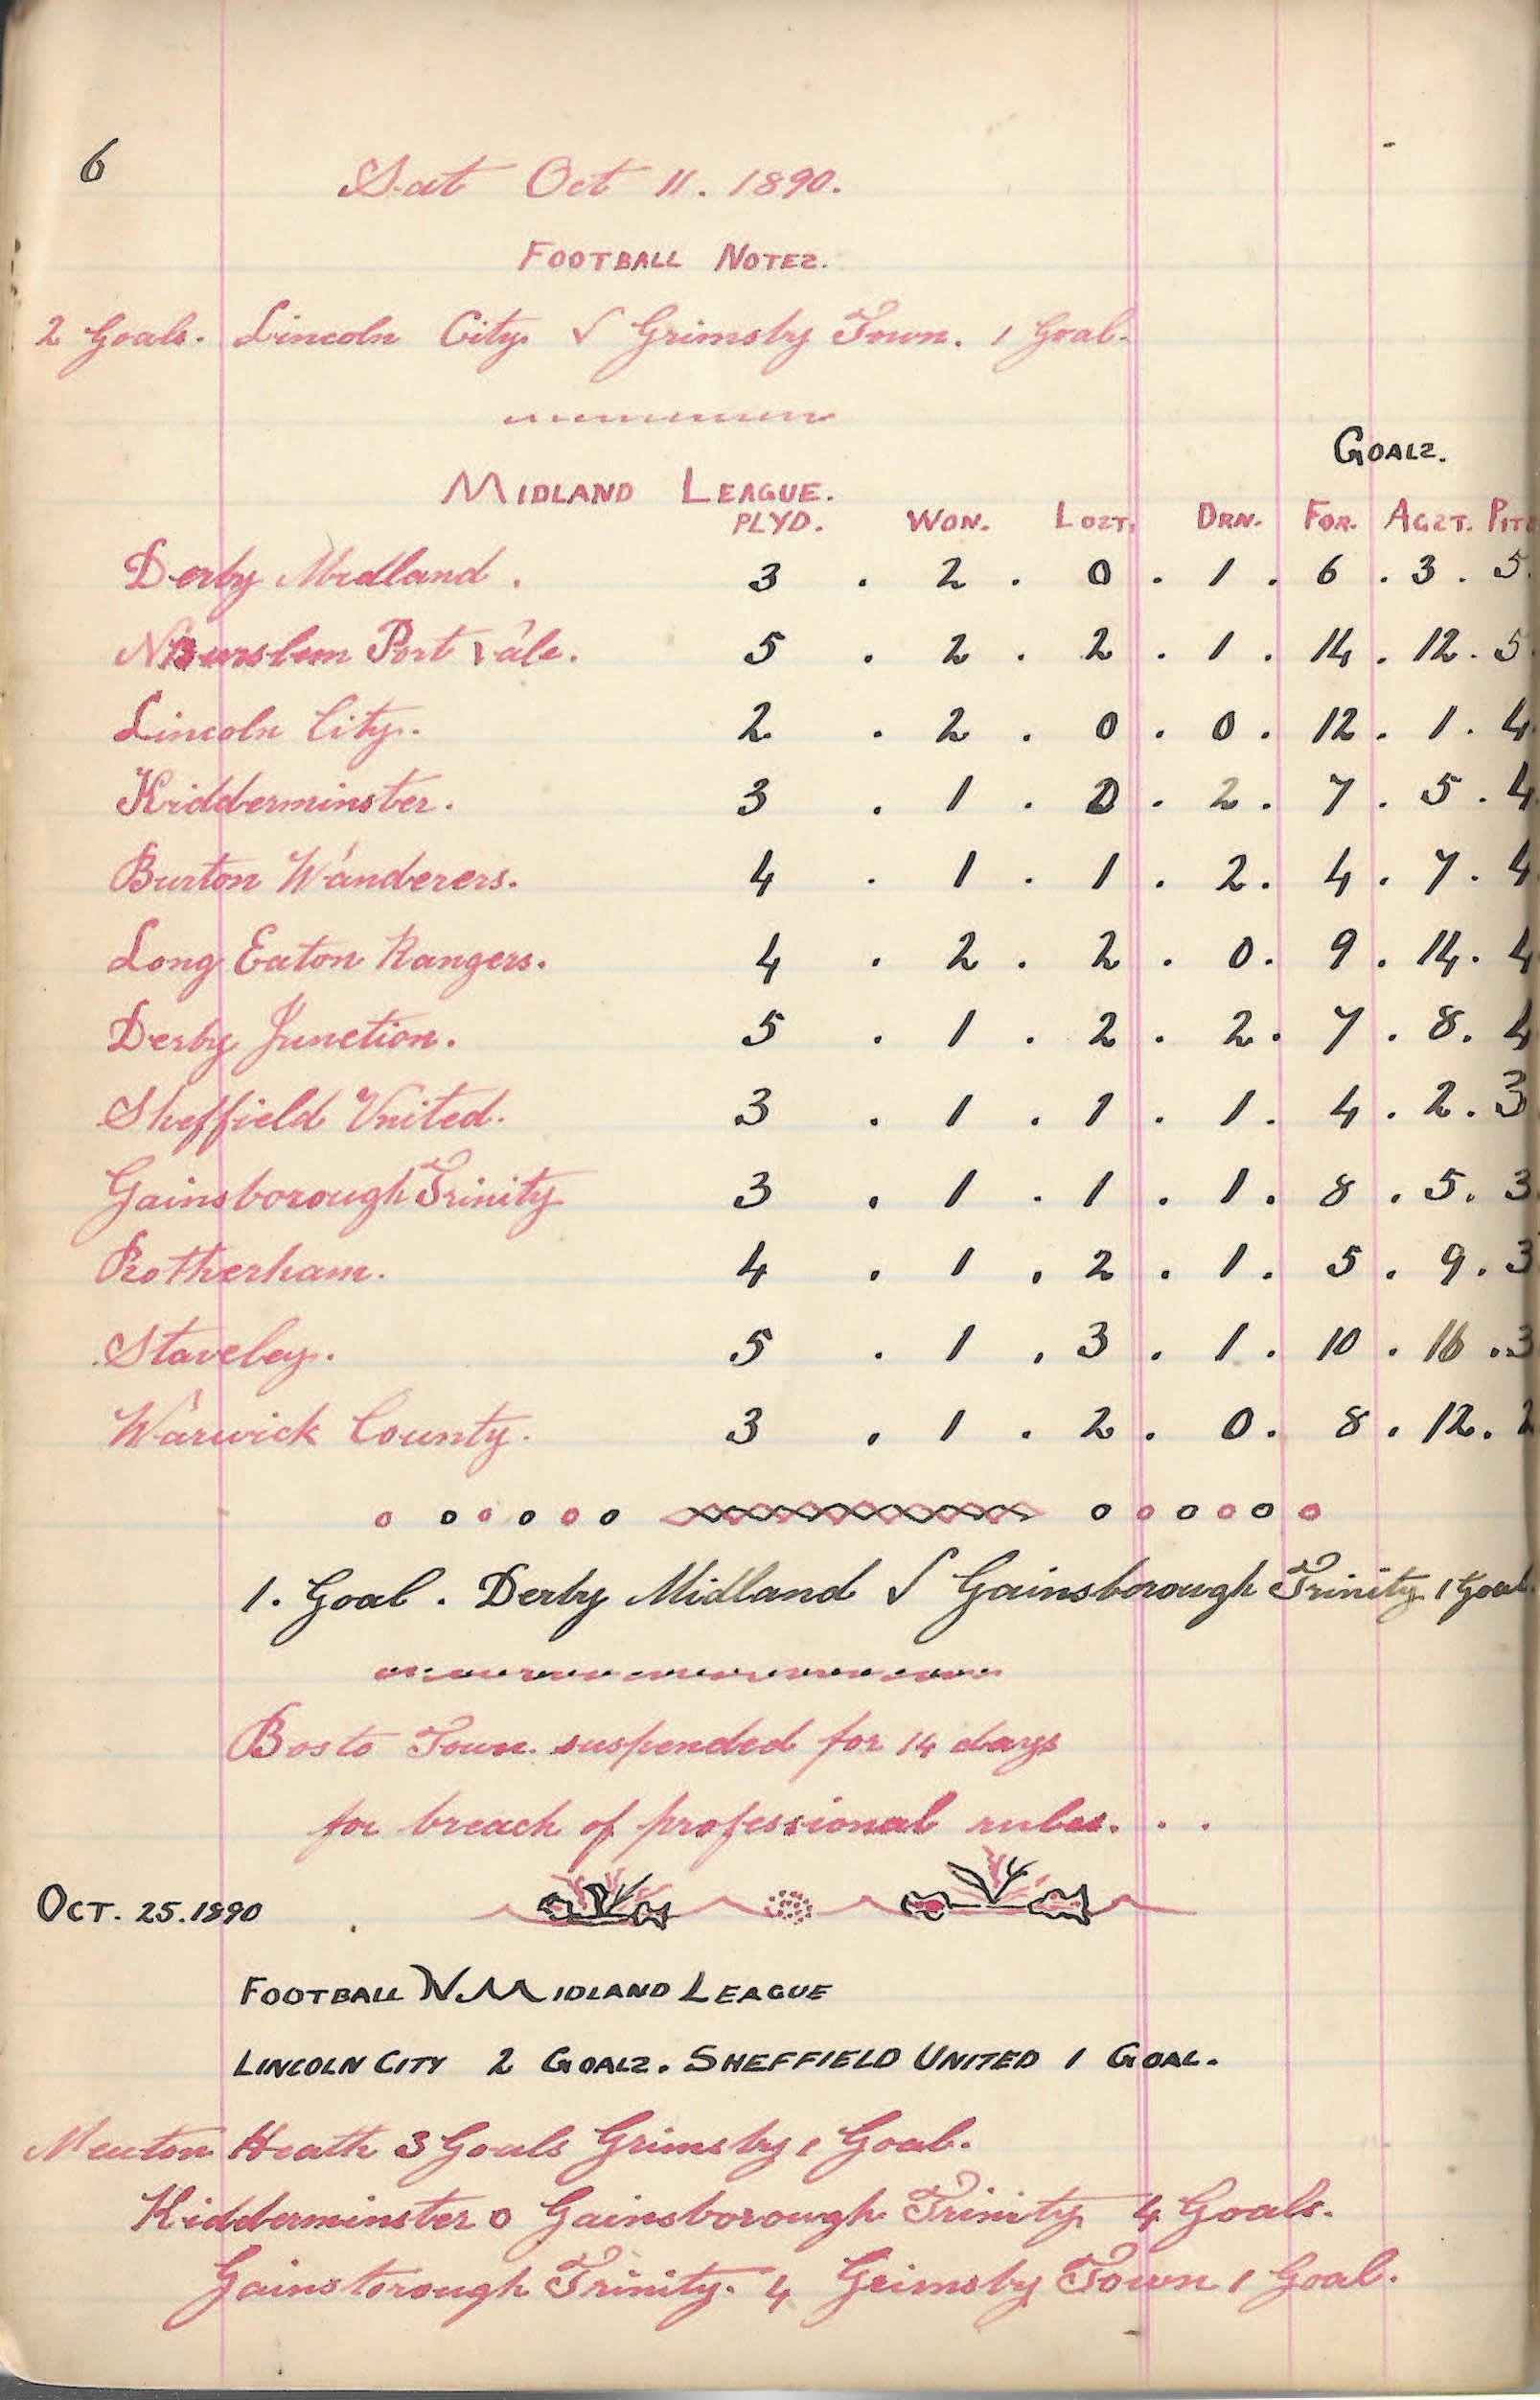 6
Sat Oct 11. 1890.
FOOTBALL NOTES.
2 Goals. Lincoln City. V Grimsby Town. 1 Goal.
GOALS.
MIDLAND LEAGUE.
PLYD. WON. LOST. DRN. FOR. AGST. PTS
Derby Midland. 3 . 2 . 0 . 1 . 6 . 3 . 5.
Burslem Port Vale. 5 . 2 . 2 . 1 . 14 . 12 . 5.
Lincoln City. 2. . 2 . 0 . 0 . 12 . 1 . 4
Kidderminster. 3 . 1 . 0 . 2 . 7 . 5 . 4
Burton Wanderers. 4 . 1 . 1 . 2 . 4 . 7 . 4
Long Eaton Rangers. 4 . 2 . 2 . 0 . 9 . 14 . 4
Derby Junction. 5 . 1 . 2 . 2 . 7 . 8 . 4
Sheffield United. 3 . 1 . 1 . 1 . 4 . 2 . 3
Gainsborough Trinity 3 . 1 . 1 . 1 . 8 . 5 . 3
Rotherham. 4 . 1 . 2 . 1 . 5 . 9 . 3
Staveley. 5 . 1 . 3 . 1 . 10 . 16 . 3
Warwick County. 3 . 1 . 2 . 0 . 8 . 12 . 2
1. Goal. Derby Midland V Gainsborough Trinity 1 Goal
Bosto Town. suspended for 14 days
for breach of professional rules. . .
OCT. 25. 1890
FOOTBALL N. MIDLAND LEAGUE
LINCOLN CITY 2 GOALS. SHEFFIELD UNITED 1 GOAL.
Newton Heath 3 Goals Grimsby 1 Goal.
Kidderminster 0 Gainsborough Trinity 4 Goals.
Gainsborough Trinity. 4 Grimsby Town 1 Goal.